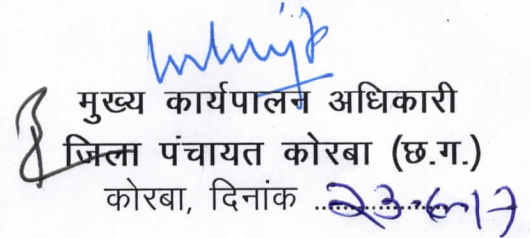 मुख्य कार्यपालन अधिकारी
जिला पंचायत कोरबा (छ.ग.)
कोरबा, दिनांक ..23-6-17